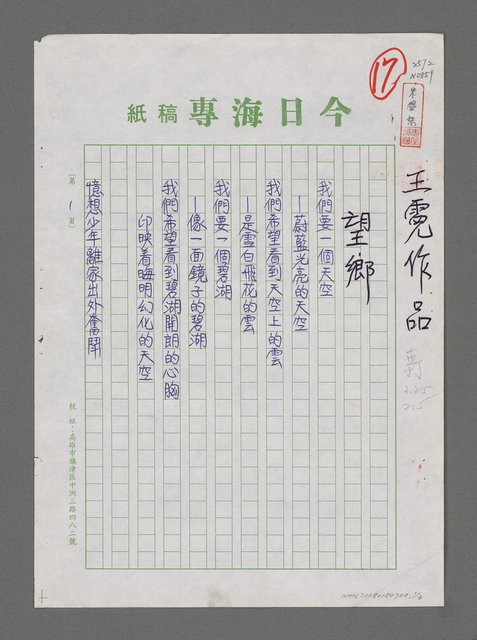 今日海專稿紙
17
2572
王霓作品
望鄉
我們要一個天空
—蔚藍光亮的天空
我們希望看到天空上的雲
—是雪白飛花的雲
我們要一個碧湖
—像一面鏡子的碧湖
我們希望看到碧湖開朗的心胸
印映着晦明幻化的天空
憶想少年離家出外奮鬥
(第1頁)
校址:高雄市旗津區中洲三路四八二號